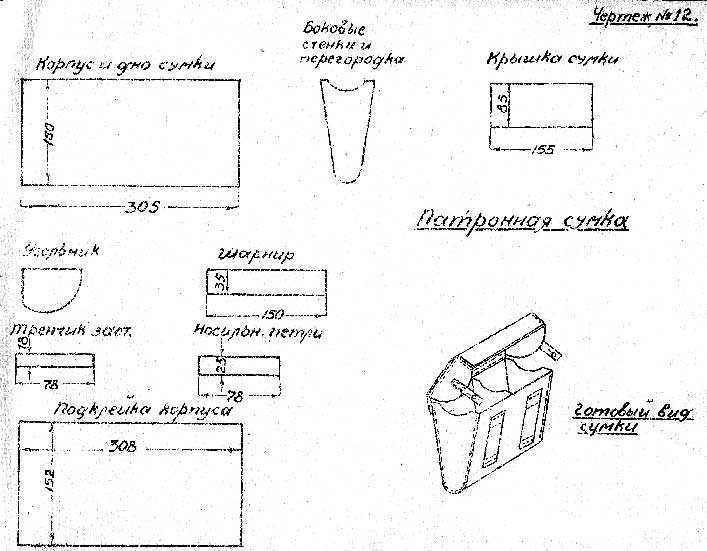 Чертеж №12.
Боковые
стенки и
перегородка
Корпус и дно сумки
Крышка сумки
150
305
85
155
Патронная сумка
Угольник
шарнир
35
150
Тренчик заст.
Носильн. петли
18
78
25
78
Подклейка корпуса
308
152
Готовый вид
сумки